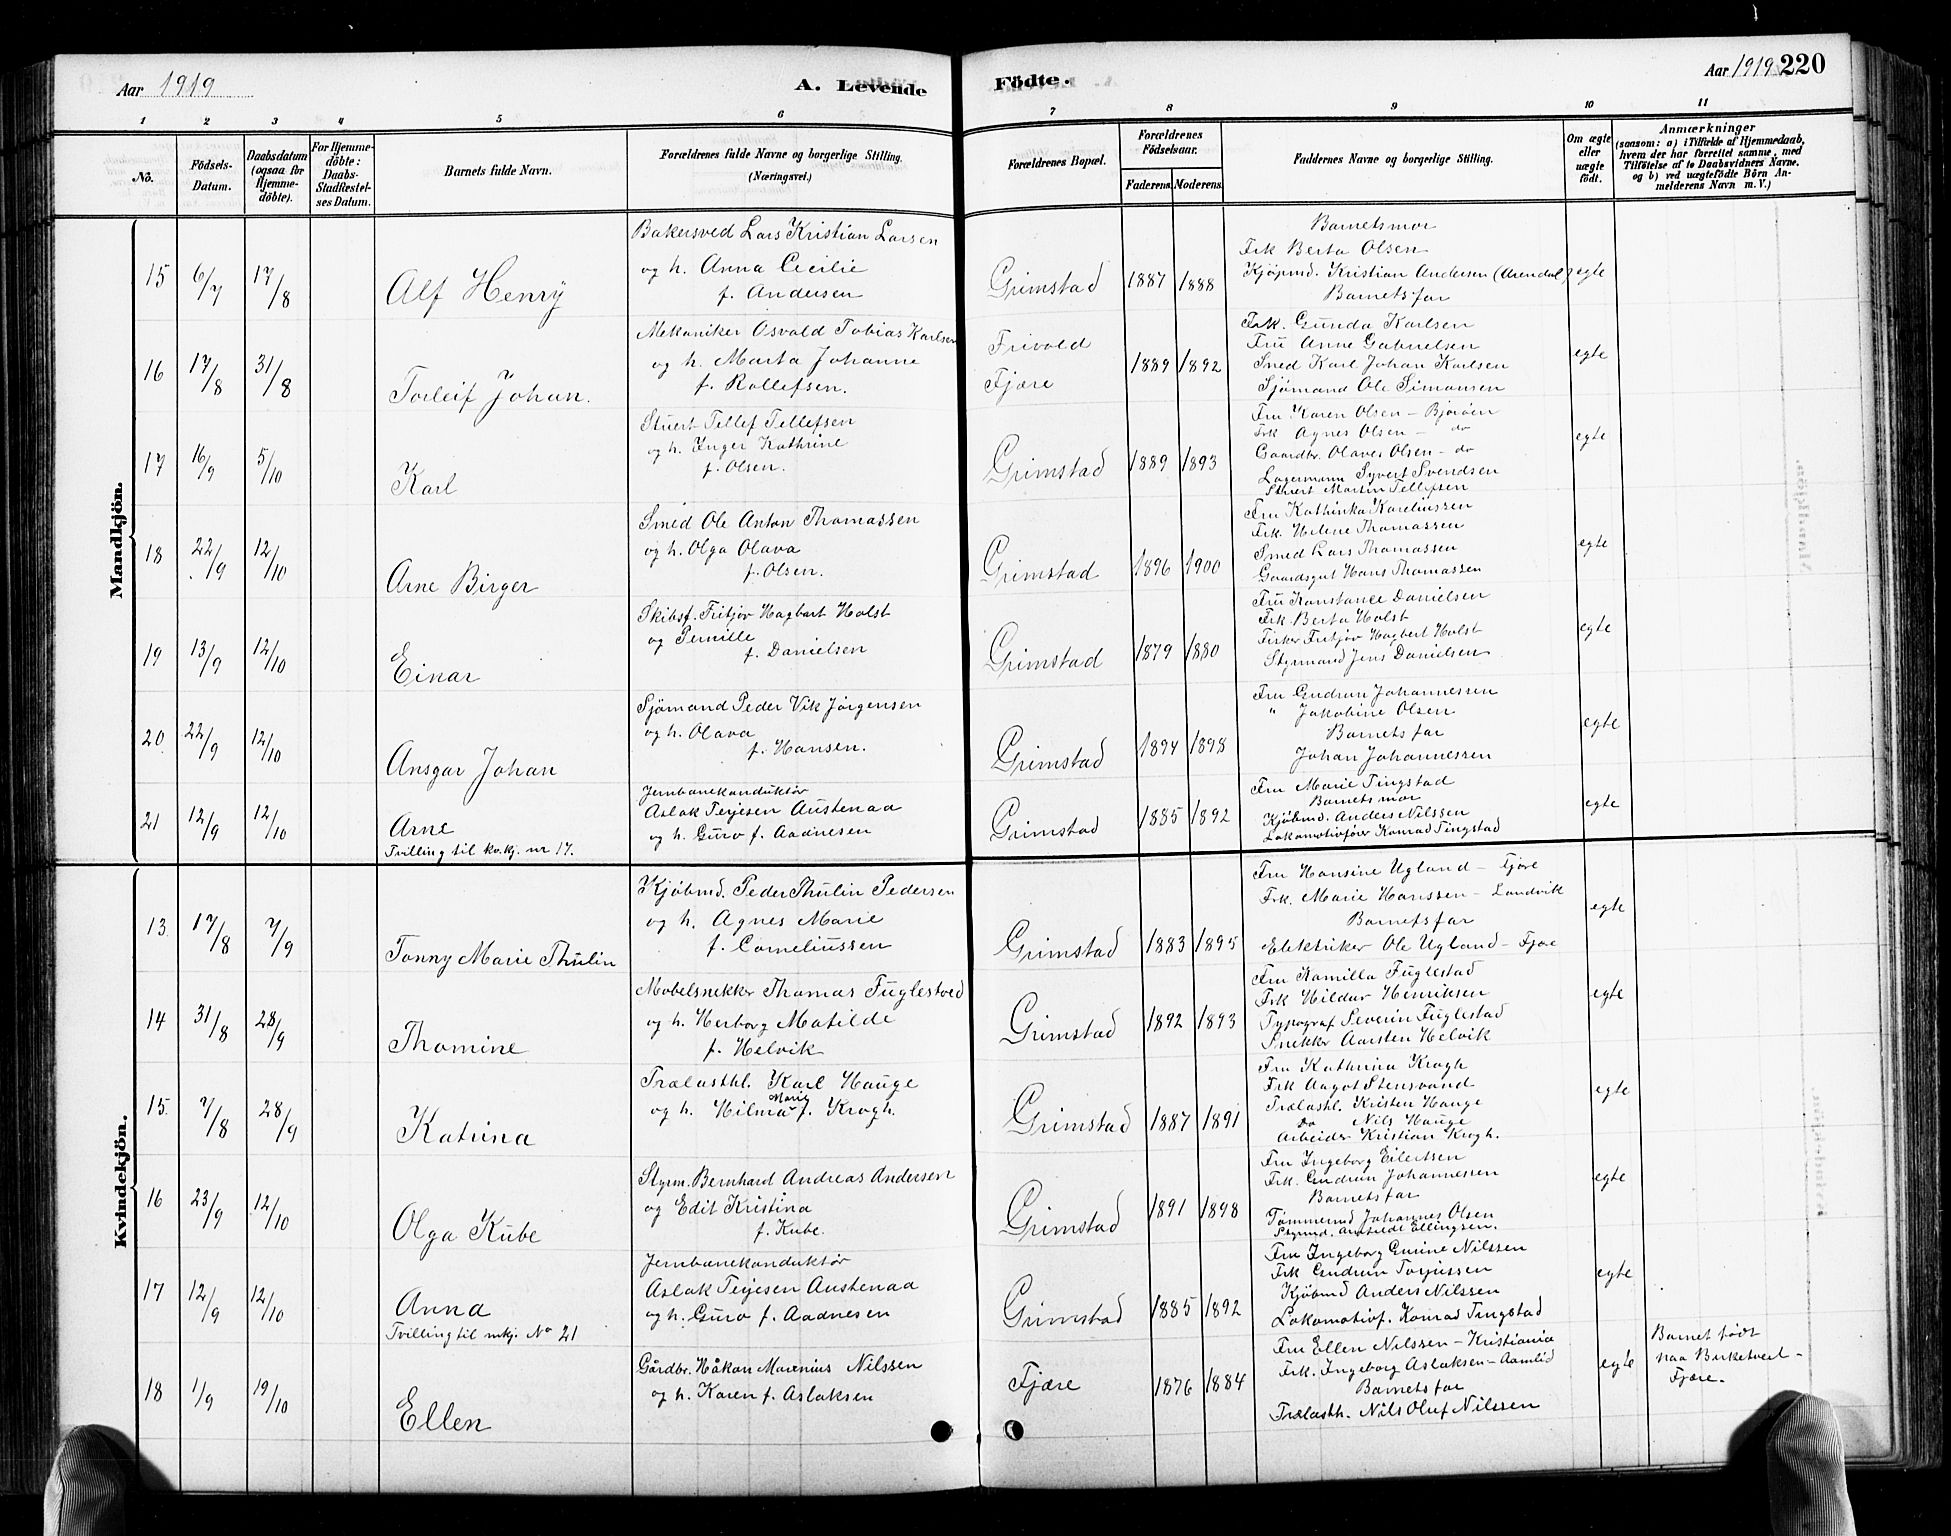 Aar 1919
A. Levende Fødte.
Aar 1919 220
1 2 3 4 5 6 7 8 9 10 11
No.
Födsels-Datum.
Daabsdatum (ogsaa for Hjemme-döbte).
For Hjemme-döbte: Daabs-Stadfæstel-ses Datum.
Barnets fulde Navn.
Forældrenes fulde Navne og borgerlige Stilling.
(Næringsvei.)
Forældrenes Bopæl.
Forældrenes Födselsaar.
Faderens. Moderens.
Faddernes Navne og borgerlige Stilling.
Om ægte eller uægte födt.
Anmærkninger
(saasom: a) i Tilfælde af Hjemmedaab, hvem der har forrettet samme, med Tilföielse af to Daabsvidners Navne, og b) ved uægtefödte Börn An-melderens Navn m. V.)
Mandkjön.
15 6/7 17/8 Alf Henry
Bakersved Lars Kristian Larsen
og h. Anna Cecilie
f. Andersen
Grimstad 1887 1888
Barnets mor
Frk Berta Olsen
Kjøpmd. Kristian Andersen (Arendal)
Barnets far
egte
16 17/8 31/8 Torleif Johan.
Mekaniker Osvald Tobias Karlsen
og h. Marta Johanne
f. Rollefsen.
Frivold
Fjære
1889 1892
Frk. Gunda Karlsen
Fru Anne Gabrielsen
Smed Karl Johan Karlsen
Sjømand Ole Simonsen
egte
17 16/9 5/10 Karl
Stuert Tellef Tellefsen
og h. Inger Kathrine
f. Olsen.
Grimstad 1889 1893
Fru Karen Olsen - Bjorøen
Frk Agnes Olsen - do
Gaardbr. Olaves Olsen - do
Lagermann Syvert Svendsen
Stuert Martin Tellefsen
egte
18 22/9 12/10 Arne Birger
Smed Ole Anton Thomassen
og h. Olga Olava
f. Olsen.
Grimstad 1896 1900
Fru Kathinka Kareliussen
Frk. Helene Thomassen
Smed Lars Thomassen
Gaardsgut Hans Thomassen
egte
19 13/9 12/10 Einar
Skibsf. Fritjov Hagbart Holst
og Pernille
f. Danielsen
Grimstad 1879 1880
Fru Konstance Danielsen
Frk. Berta Holst
Fisker Fritjov Hagbert Holst
Styrmand Jens Danielsen
egte
20 22/9 12/10 Ansgar Johan
Sjømand Peder Vik Jørgensen
og h. Olava
f. Hansen.
Grimstad 1894 1898
Fru Gudrun Johannessen
" Jakobine Olsen
Barnets far
Johan Johannessen
egte
21 12/9 12/10 Arne
Tvilling til kv.kj. nr 17.
Jernbanekonduktør
Aslak Terjesen Austenaa
og h. Guro f. Aadnesen
Grimstad 1885 1892
Fru Marie Tingstad
Barnets mor
Kjøbmd. Anders Nilssen
Lokomotivfører Konrad Tingstad
egte
Kvindekjön.
13 17/8 7/9 Tonny Marie Thulin
Kjøbmd. Peder Thulin Pedersen
og h. Agnes Marie
f. Corneliussen
Grimstad 1883 1895
Fru Hansine Ugland - Fjære
Frk. Marie Hanssen - Landvik
Barnets far
Elektriker Ole Ugland - Fjære
egte
14 31/8 28/9 Thomine
Møbelsnekker Thomas Fuglestved
og h. Herborg Matilde
f. Helvik
Grimstad 1892 1893
Fru Kamilla Fuglestad
Frk Hildur Henriksen
Typograf Severin Fuglestad
Snekker Aarsten Helvik
egte
15. 7/8 28/9 Katrina
Trælasthl. Karl Hauge
og h. Hilma Marie f. Krogh.
Grimstad 1887 1891
Fru Kathrina Krogh
Frk Aagot Stensvand
Trælasthl. Kristen Hauge
Do Nils Hauge
Arbeider Kristian Krogh.
egte
16 23/9 12/10 Olga Kube
Styrm. Bernhard Andreas Andersen
og Edit Kristina
f. Kube.
Grimstad 1891 1898
Fru Ingeborg Eilertsen
Frk. Gudrun Johannessen
Barnets far
Tømmermd Johannes Olsen
Styrmd. Ellingsen.
egte
17 12/9 12/10 Anna
Tvilling til mkj. No 21
Jernbanekonduktør
Aslak Terjesen Austenaa
og h. Guro f. Aadnesen
Grimstad 1885 1892
Fru Ingeborg Gurine Nilssen
Frk Gudrun Torjussen
Kjøbmd Anders Nilssen
Lokomotivf. Konrad Tingstad
egte
18 1/9 19/10 Ellen
Gårdbr. Håkon Marenius Nilssen
og h. Karen f. Aslaksen
Fjære 1876 1884
Fru Ellen Nilssen - Kristiania
Frk. Ingeborg Aslaksen - Aamlid
Barnets far
Trælasth. Nils Oluf Nilssen
egte
Barnet født
paa Birketveit -
Fjære.